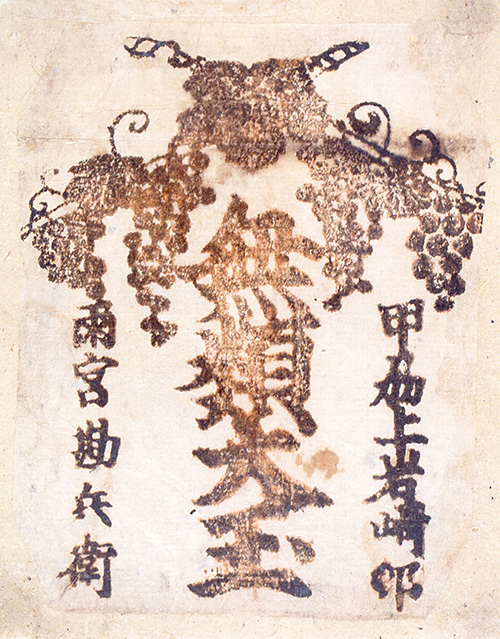 甲刕上岩崎邨
無類大玉
雨宮勘兵衛